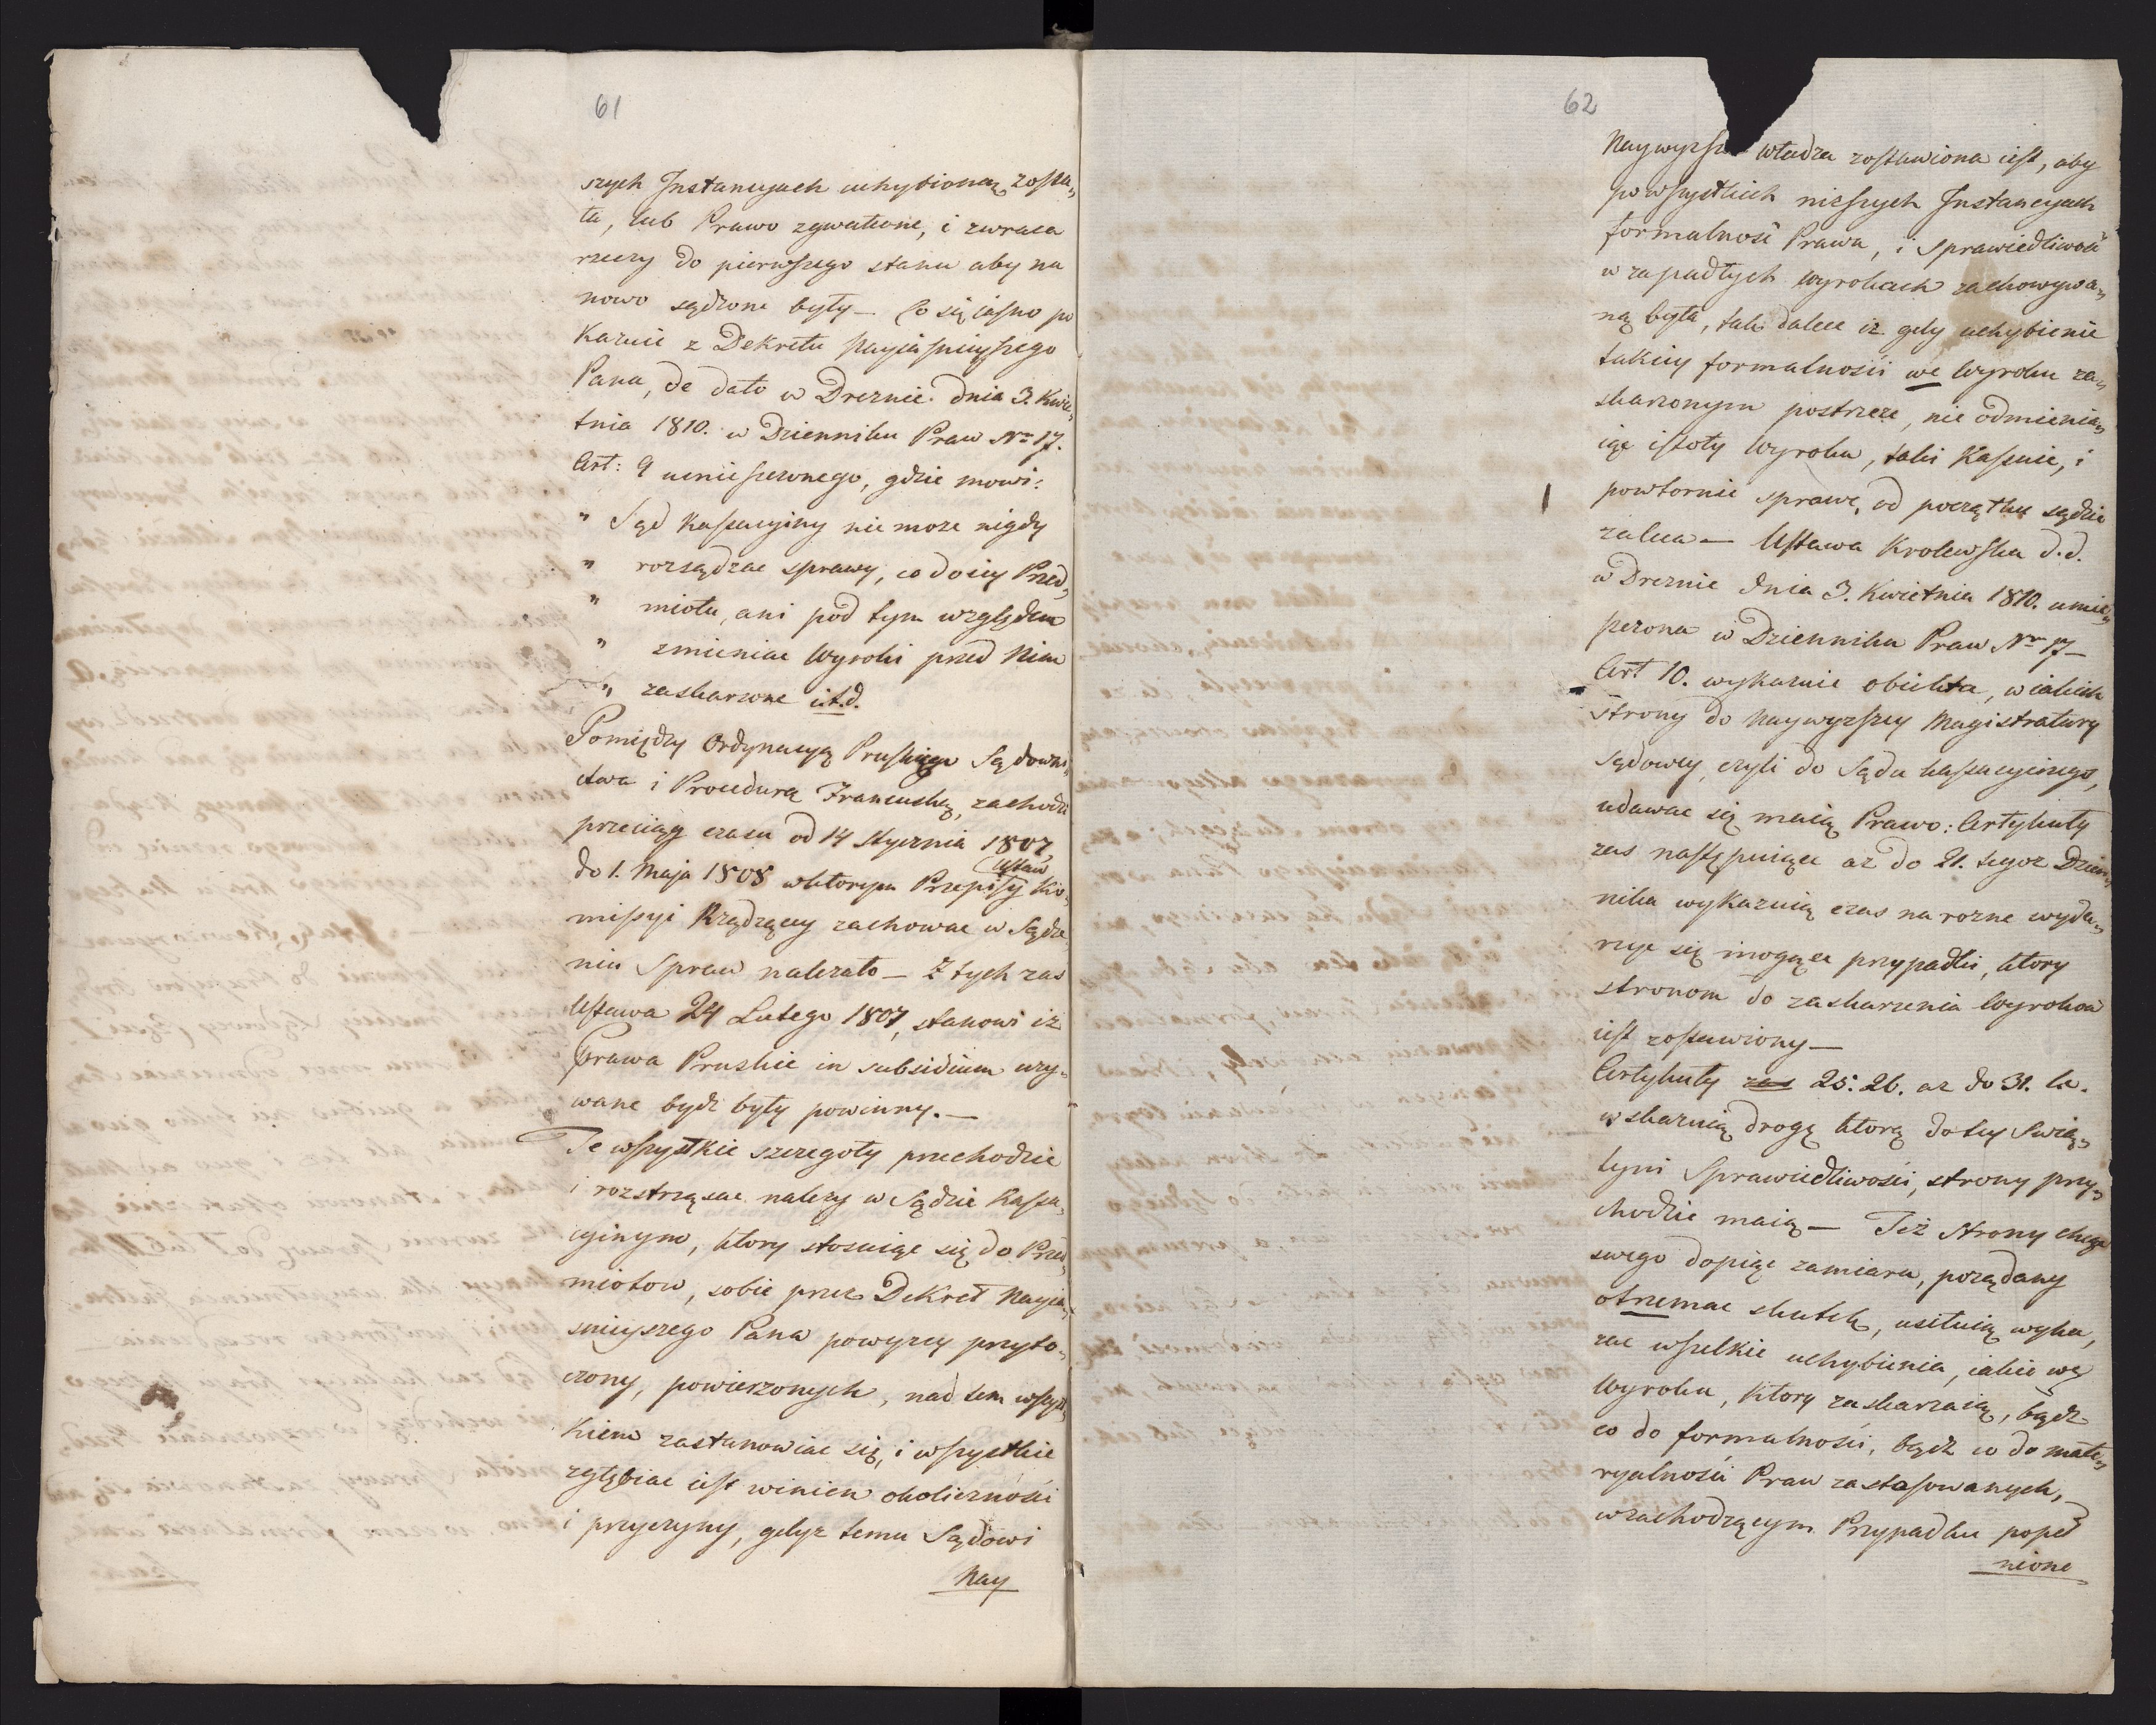 61
szych Instancyach uchybioną zosta„
ła, lub Prawo zgwałcone, i zwraca
rzeczy do pierwszego stanu aby na
nowo sądzone były — Co się iasno po
kazuie z Dekretu Nayiasnieyszego
Pana, de dato w Dreznie dnia 3. Kwie„
tnia 1810. w Dzienniku Praw Nro 17.
Art: 9 umieszczonego, gdzie mowi:
" Sąd Kassacyiny nie może nigdy
" rozsądzac sprawy, co do iey Przed„
" miotu, ani pod tym względem
" zmieniac Wyroki przed Nim
" zaskarzone i.t.d.
Pomiędzy Ordynacyą Pruskiego Sądowni„
ctwa i Procedurą Francuską, zachodzi
przeciąg czasu od 14 Stycznia 1807,
Ustaw
do 1. Maja 1808 w ktorym Przepisy Ko„
missyi Rządzącey zachowac w Sądze
niu Spraw nalezało — Z tych zas
Ustawa 24 Lutego 1807, stanowi iz
Prawa Pruskie in subsidium uzy„
wane bydz były powinny. —
Te wszystkie szczegoły przechodzic
i roztrząsac nalezy w Sądzie Kassa„
cyinym, ktory stosuiąc się do Przed„
miotow, sobie przez Dekret Nayia„
snieyszego Pana powyzey przyto„
czony, powierzonych, nad tem wszyst„
kiem zastanowiac się, i wszystkie
zgłębiac iest winien okolicznosci
i przyczyny, gdyz temu Sądowi
Nay
62
Naywyzsza władza zostawiona iest, aby
po wszystkich nizszych Instancyach
formalność Prawa, i Sprawiedliwość
w zapadłych Wyrokach zachowywa„
ną była, tak dalece iz gdy uchybienie
takiey formalności we Wyroku za„
skarzonym postrzeze, nie odmienia„
iąc istoty Wyroku, taki Kassuie, i
powtornie sprawę od początku sądzic
zaleca — Ustawa Krolewska d.d.
w Dreznie dnia 3. Kwietnia 1810. umie„
szczona w Dzienniku Praw Nro 17 —
Art 10. wykazuie obiekta, w iakich
strony do Naywyzszey Magistratury
Sądowey, czyli do Sądu kassacyinego,
udawac się maią Prawo: Artykuły
zas następuiące az do 21. tegoz Dzien„
nika wykazuią czas na rozne wyda„
rzyc się mogące przypadki, ktory
stronom do zaskarzenia Wyrokow
iest zostawiony —
Artykuły zas 25. 26. az do 31. &c.
wskazuią drogę ktorą do tey Swią„
tyni Sprawiedliwości, strony przy„
chodzic maią — Też Strony chcąc
swego dopiąc zamiaru, pożądany
otrzemac skutek, usiłuią wyka„
zac wszelkie uchybienia, iakie we
Wyroku, ktory zaskarzaią, bądz
co do formalności, bądz co do mate„
ryalności Praw zastosowanych,
w zachodzącym Przypadku popeł
nione